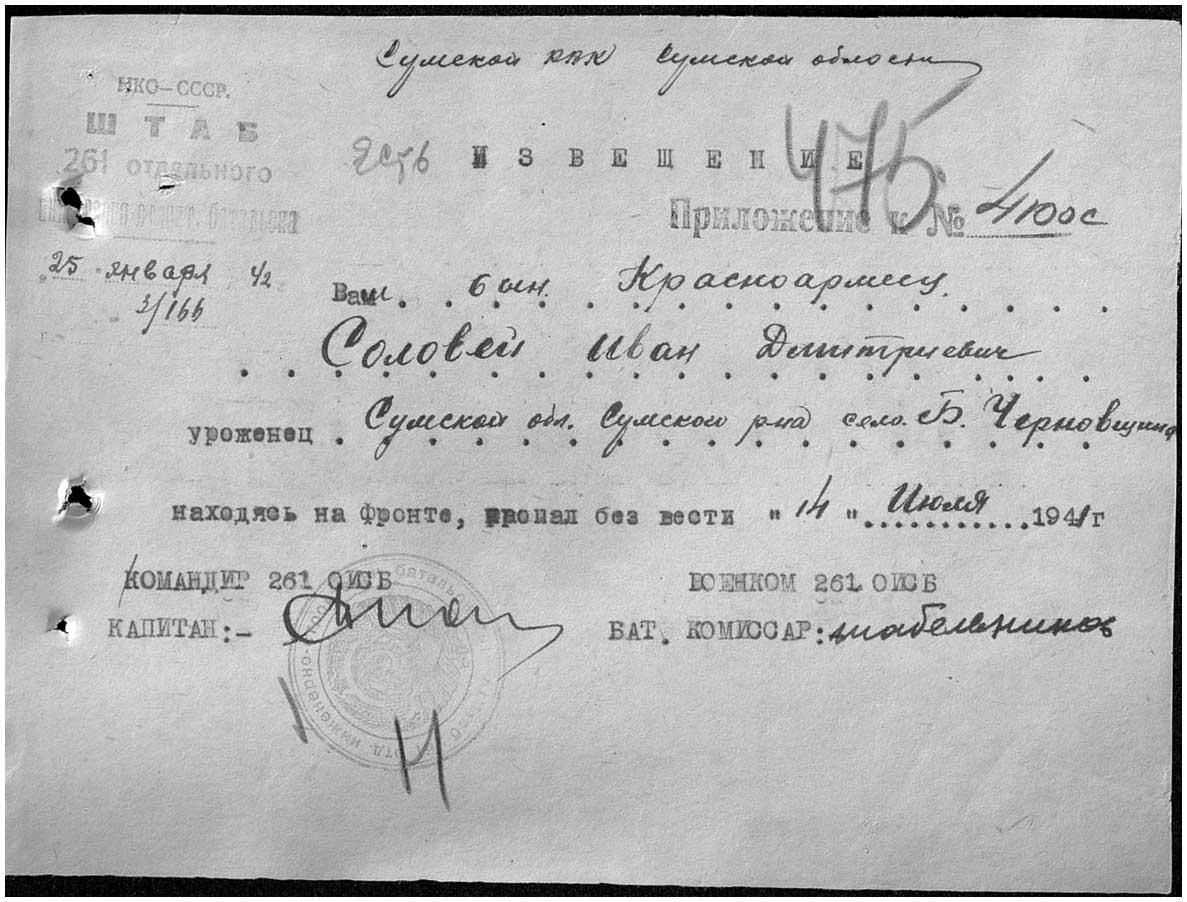 Сумской РВК Сумской области
НКО-СССР.
ШТАБ
261 отдельного
Есть ИЗВЕЩЕНИЕ
475
Приложение к № 4100с
"25" января 42
3/166
Ваш сын Красноармеец
Соловей Иван Дмитриевич
уроженец Сумской обл. Сумского р-на село Б. Черновщина
находясь на фронте, пропал без вести "14" Июля 1941г
КОМАНДИР 261 ОИСБ ВОЕНКОМ 261 ОИСБ
КАПИТАН:- БАТ. КОМИССАР:
Н